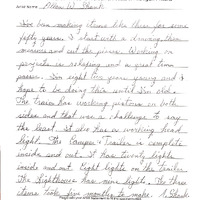 Allan W. Shank
I've been making items like these for some
fifty years. I start with a drawing, then
measure and cut the pieces. Working on
projects is relaxing and a great time
passer. I'm eight years young and I
hope to be doing this until I'm old.
The train has working pistons on both
sides and that was a challenge to say
the least. It also has a working head
light. The Camper Trailer is complete
inside and out. It has twenty lights
inside and out. Eight lights on the trailer.
The Lighthouse has nine lights. The three
items took five months to make. A. Shank